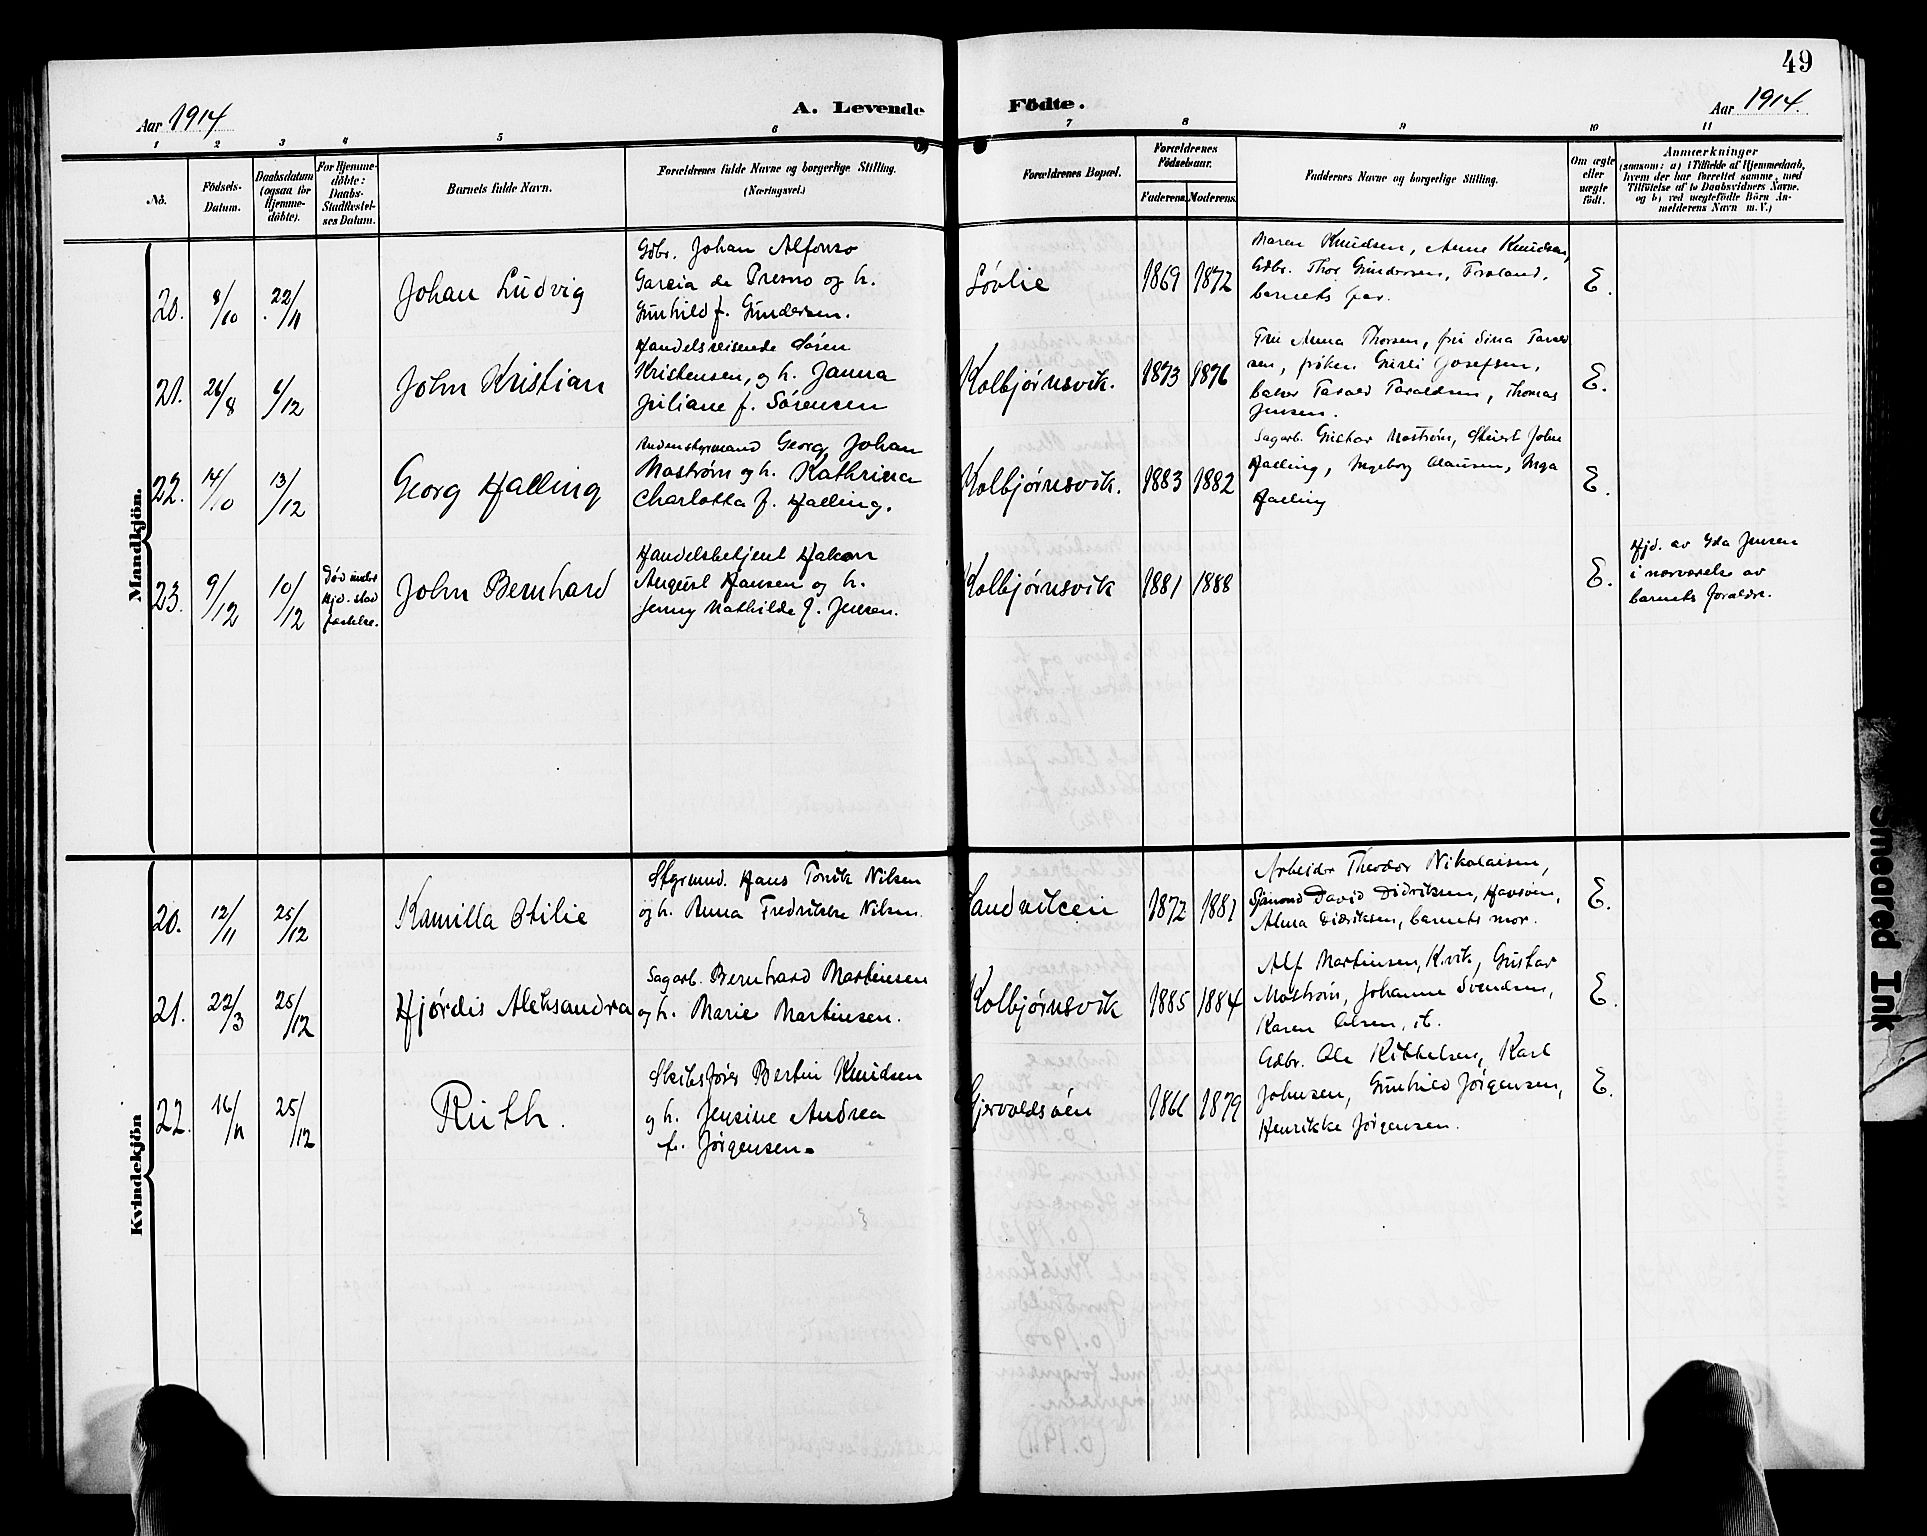 49
Aar 1914
A. Levende Födte.
Aar 1914.
1 2 3 4 5 6 7 8 9 10 11
No.
Födsels-
Datum.
Daabsdatum
(ogsaa for
Hjemme-
döbte).
For Hjemme-
döbte:
Daabs-
Stadfæstel-
ses Datum.
Barnets fulde Navn.
Forældrenes fulde Navne og borgerlige Stilling.
(Næringsvei.)
Forældrenes Bopæl.
Forældrenes
Födselsaar.
Faderens. Moderens.
Faddernes Navne og borgerlige Stilling.
Om ægte
eller
uægte
födt.
Anmærkninger
(saasom: a) i Tilfælde af Hjemmedaab,
hvem der har forrettet samme, med
Tilföielse af to Daabsvidners Navne,
og b) ved uægtefödte Börn An-
melderens Navn m. V.)
Mandkjön.
20.
8/10
22/11
Johan Ludvig
Gdbr. Johan Alfonso
Garcia de Presno og h.
Gunhild f. Gundersen.
Løvlie
1869
1872
Maren Knudsen, Anne Knudsen,
Gdbr. Thor Gundersen, Froland,
barnets far.
E.
21.
26/8
6/12
John Kristian
Handelsreisende Søren
Kristensen, og h. Janna
Juliane f. Sørensen
Kolbjørnsvik.
1873
1876
Fru Anna Thorsen, fru Sina Tarald
sen, frøken Gusti Josefsen,
baker Tarald Taraldsen, Thomas
Jensen.
E.
22.
14/10
13/12
Georg Halling
Andenstyrmand Georg Johan
Mostrøm og h. Kathrina
Charlotta f. Halling.
Kolbjørnsvik.
1883
1882
Sagarb. Gustav Mostrøm, Stuert John
Halling, Ingeborg Clausen, Inga
Halling
E.
23.
9/12
10/12
Død inden
Hjd. stad
fæstelse.
John Bernhard
Handelsbetjent Hakon
August Hansen og h.
Jenny Mathilde f. Jensen.
Kolbjørnsvik
1881
1888
E.
Hjd. av Ida Jensen
i nærværelse av
barnets forældre.
Kvindekjön
20.
12/11
25/12
Kamilla Otilie
Styrmd. Hans Torvik Nilsen
og h. Anna Fredrikke Nilsen.
Sandviken
1872
1881
Arbeider Theodor Nikolaisen,
Sjømand David Didriksen, Havsøen,
Alma Didriksen, barnets mor.
E.
21.
22/3
25/12
Hjørdis Aleksandra
Sagarb. Bernhard Martinsen
og h. Marie Martinsen.
Kolbjørnsvik
1885
1884
Alf Martinsen, K.vik, Gustav
Mostrøm, Johanne Svendsen,
Karen Olsen, ib.
E.
22.
16/11
25/12
Ruth.
Skibsfører Bertin Knudsen
og h. Jensine Andrea
f. Jørgensen.
Gjervoldsøen
1866
1879
Gdbr. Ole Kittelsen, Karl
Johnsen, Gunhild Jørgensen,
Henrikke Jørgensen.
E.
Smeared Ink